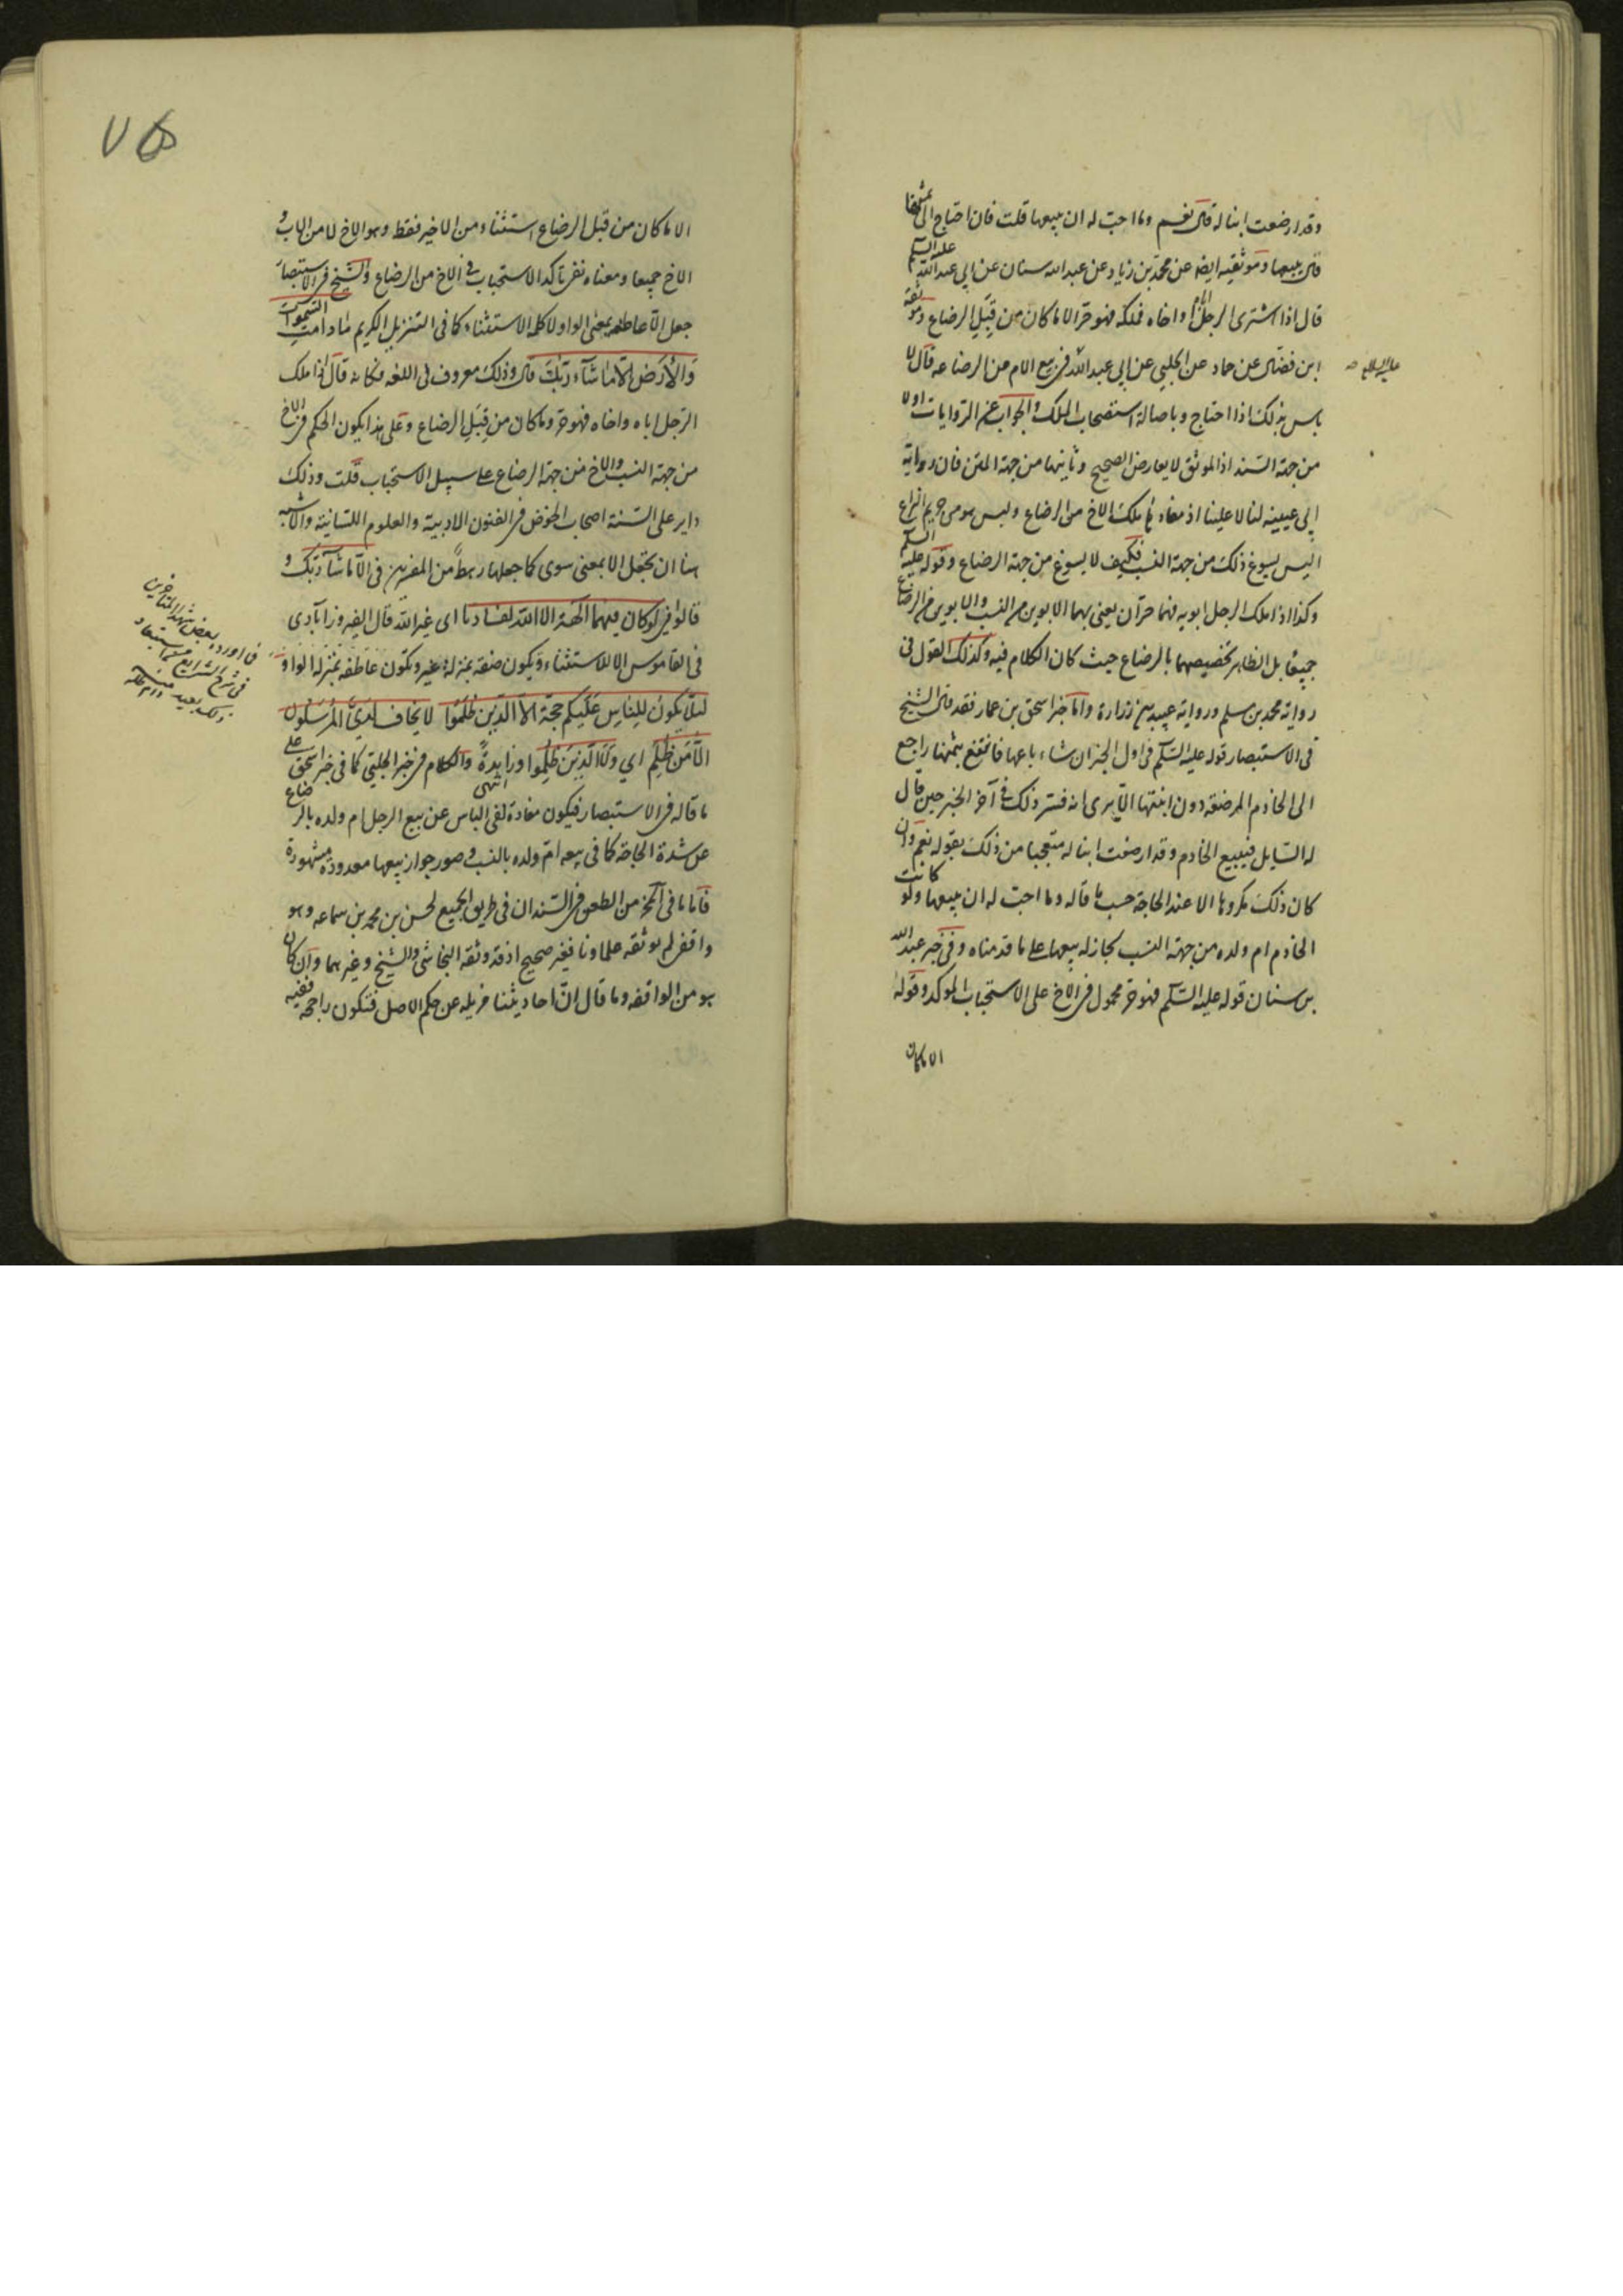 وقد ارضعت ابنا له قال نعم وما احب له ان يبيعها قلت فان احتاج الى ثمنها
قال يبيعها وموثقيه ايضا عن محمد بن زياد عن عبد الله سنان عن ابي عبد الله عليه السلم
قال اذا اشترى الرجل اباه او اخاه فملكه فهو حر الا ما كان من قبل الرضاع وموثقة
ابن فضال عن حماد عن الحلبي عن ابي عبد الله في بيع الام من الرضاعه قال لا
عليه السلام صح
باس بذلك اذا احتاج وباصالة استصحاب الملك والجواب عن الروايات اولا
من جهة السند اذ الموثق لا يعارض الصحيح وثانيها من جهة المتن فان رواية
ابي عيينه لنا لا علينا اذ مفاد يملك الاخ من الرضاع وليس هو من
اليس يسوغ ذلك من جهة النسب فكيف لا يسوغ من جهة الرضاع وقوله عليه السلم
وكذا اذا ملك الرجل ابويه فهما حران يعني بهما الابوين من النسب والابوين من الرضاع
جميعا بل الظاهر تخصيصهما بالرضاع حيث كان الكلام فيه وكذلك القول في
رواية محمد بن مسلم ورواية عبيد بن زرارة واما خبر اسحق بن عمار فقد قال الشيخ
في الاستبصار قوله عليه السلم في اول الخبر ان شاء باعها فانتفع بثمنها راجع
الى الخادم المرضعة دون ابنتها الا يرى انه فسر ذلك في آخر الخبر حين قال
له السايل فيبيع الخادم وقد ارضعت ابنا له متعجبا من ذلك بقوله نعم وان
كان ذلك مكروها الا عند الحاجة حسب ما قاله وما احب له ان يبيعها ولو كانت
الخادم ام ولده من جهة النسب لجاز له بيعها على ما قدمناه وفي خبر عبد الله
بن سنان قوله عليه السلم فهو حر محمول في الاخ على الاستحباب الموكد وقوله
الا ما كان
الا ما كان من قبل الرضاع استثناء من الاخير فقط وهو الاخ لا من الاب و
الاخ جميعا ومعناه نفي تاكد الاستحباب في الاخ من الرضاع والشيخ في الاستبصار
جعل الا عاطفه بمعنى الواو لا كلمة الاستثناء كما في التنزيل الكريم ما دامت السموات
والارض الا ما شاء ربك قال وذلك معروف في اللغه فكانه قال اذا ملك
الرجل اباه واخاه فهو حر وما كان من قبل الرضاع وعلى هذا يكون الحكم في الاخ
من جهة النسب والاخ من جهة الرضاع على سبيل الاستحباب قلت وذلك
داير على السنة اصحاب الخوض في الفنون الادبية والعلوم اللسانية والاشبه
هنا ان يجعل الا بمعنى سوى كما جعلها رهط من المفسرين في الا ما شاء ربك و
قالوا في لو كان فيهما آلهة الا الله لفسدتا اى غير الله قال الفيروزآبادى
في القاموس الا للاستثناء ويكون صفة بمنزلة غير وتكون عاطفه بمنزلة الواو
لئلا يكون للناس عليكم حجة الا الذين ظلموا لا يخاف لدي المرسلون
الا من ظلم اي ولا الذين ظلموا وزايدة انتهى والكلام في خبر الحلبي كما في خبر اسحق على
ما قاله في الاستبصار فيكون مفاده نفى الباس عن بيع الرجل ام ولده بالرضاع
عن شدة الحاجة كما في بيعه ام ولده بالنسب وصور جواز بيعها معدودة مشهورة
فاما ما في المخ من الطعن في السند ان في طريق الجميع لحسن بن محمد بن سماعه وهو
واقفي لم يوثقه علماونا فغير صحيح اذ قد وثقه النجاشي والشيخ وغيرهما وان كان
هو من الواقفه وما قال ان احاديثنا مزيله عن حكم الاصل فتكون راجحه ففيه
اورده بعض شهداء المتاخرين
في شرح الشرايع من استبعاد
ذلك بعيد منه دام ظله
٧٥